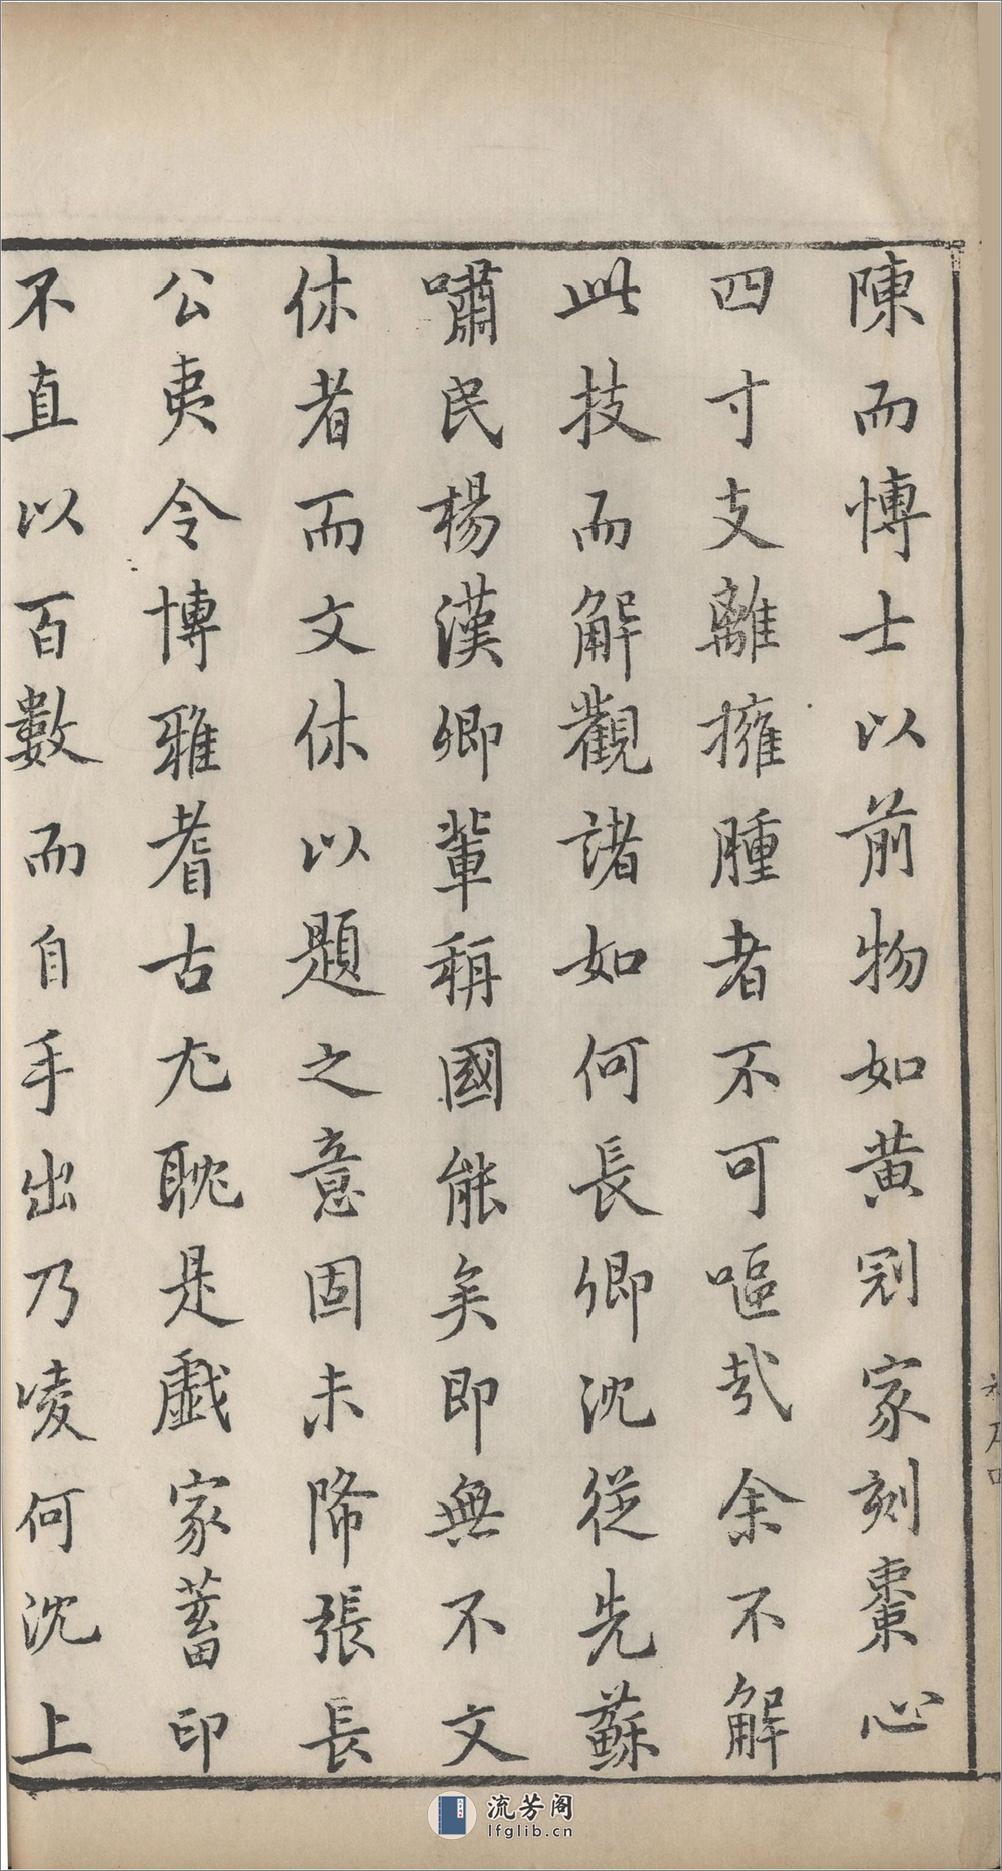 陳而博士以前物如黄冠家刻棗心
四寸支離擁腫者不可嘔哉余不解
此技而解觀諸如何長卿沈從先蘇
嘯民楊漢卿輩稱國能矣即無不文
休者而文休以題之意固未降張長
公夷令博雅耆古尤耽是戲家蓄印
不直以百數而自手出乃凌何沈上
流芳阁
lfglib.cn